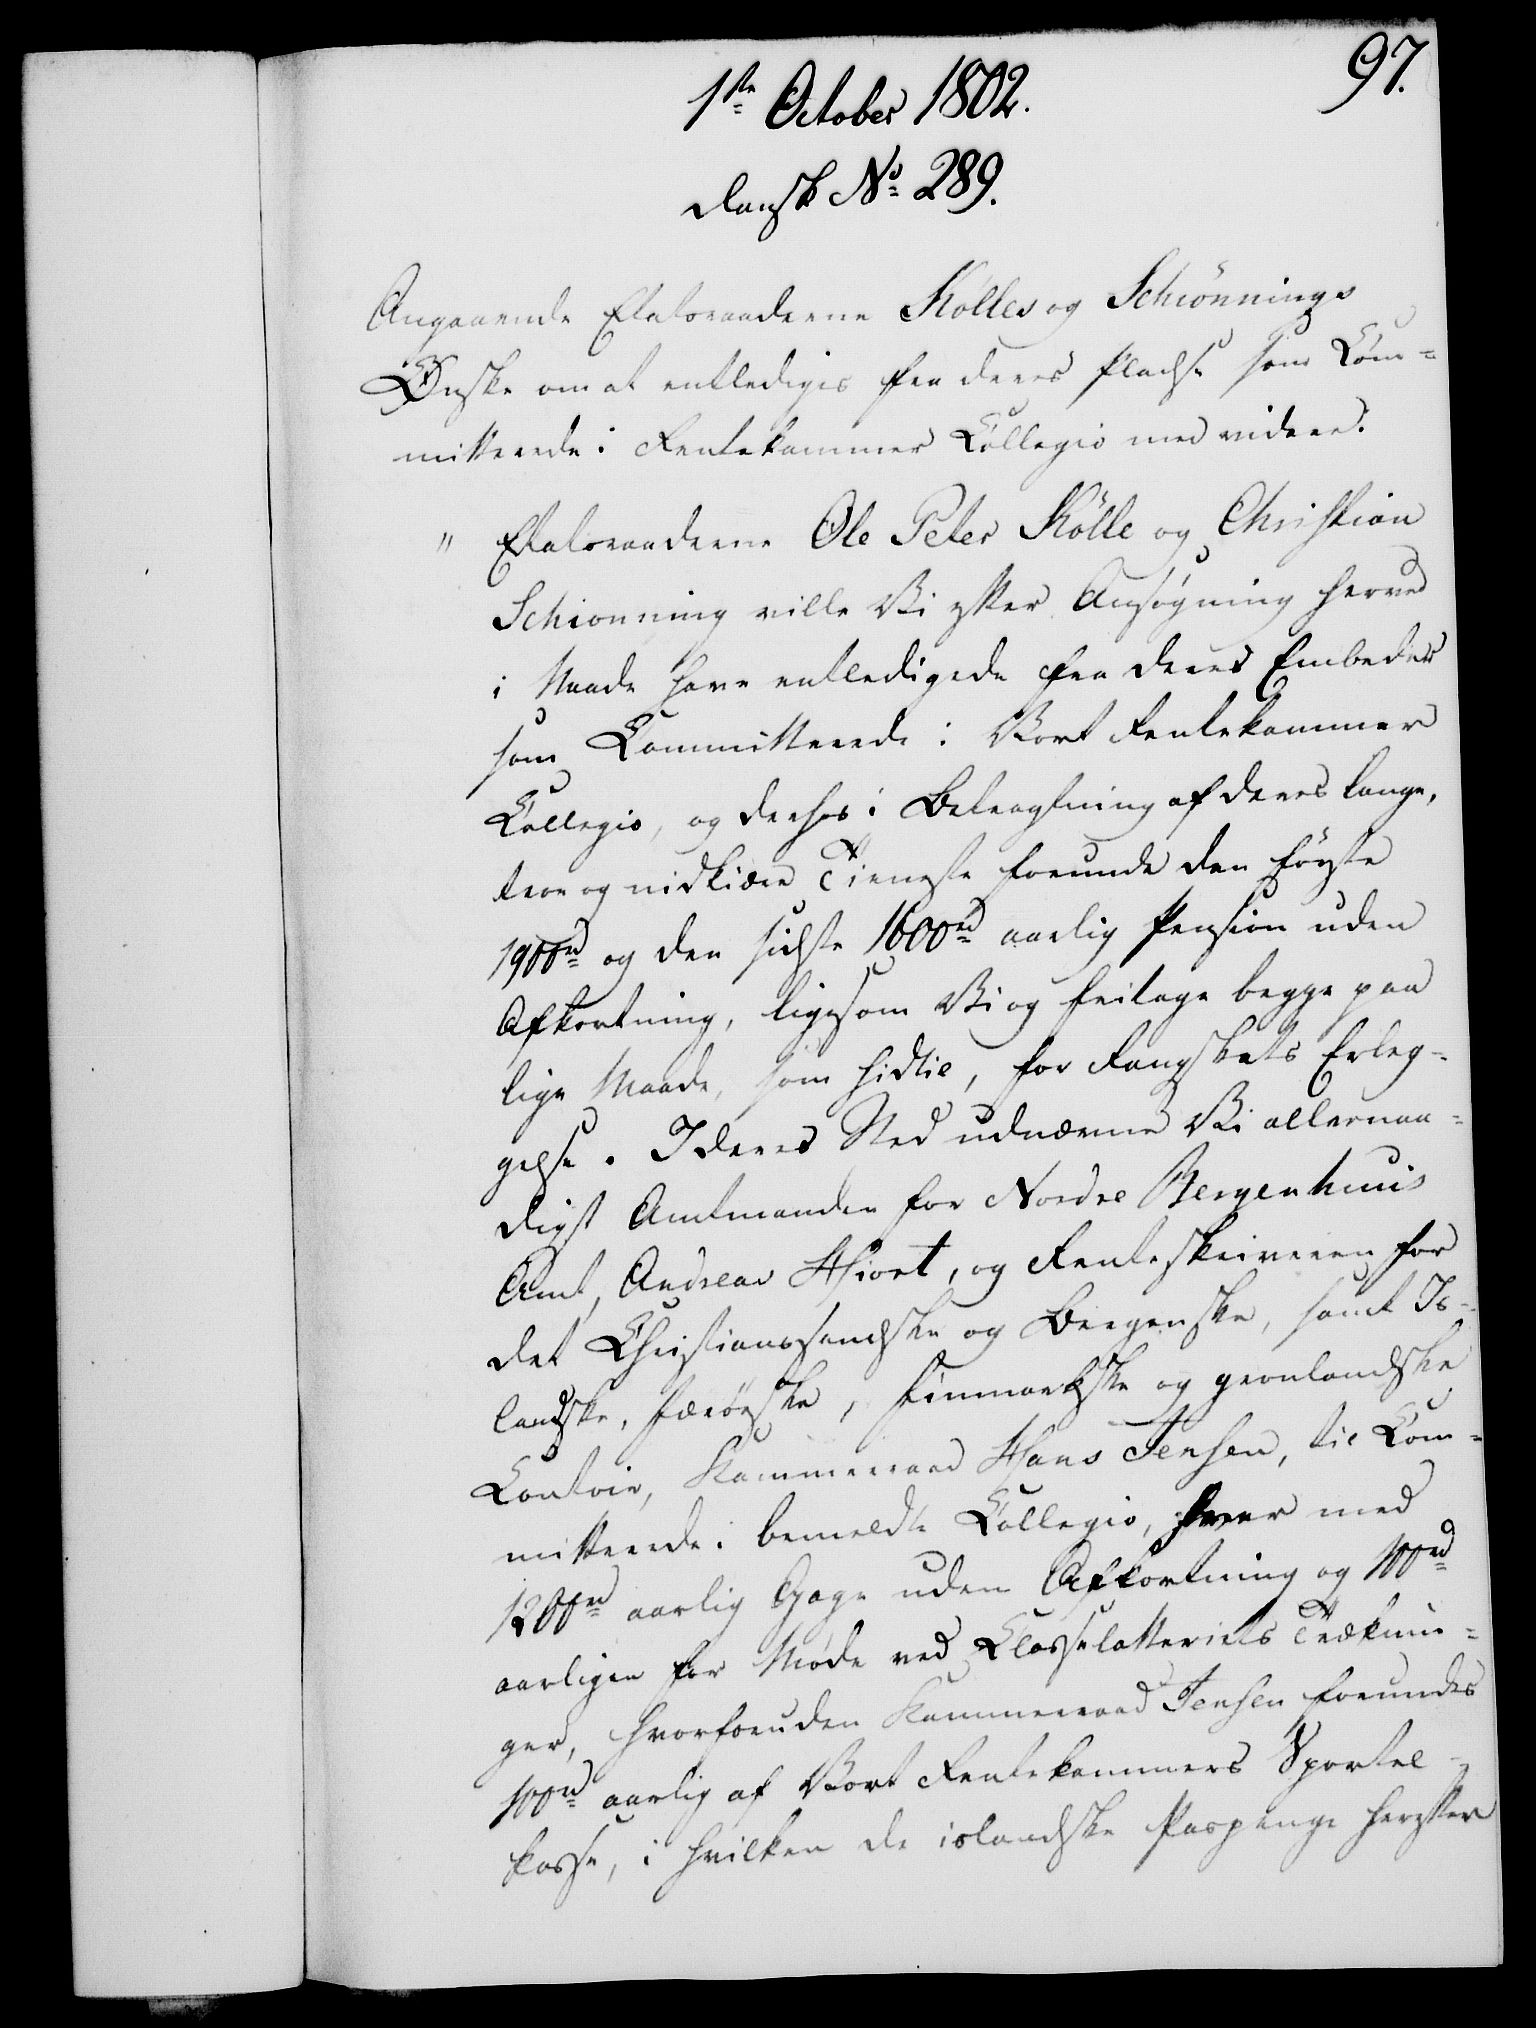 97.
1ste October 1802.
Dansk No 289.
Angaaende Etatsraaderne Kölles og Schiönnings
Ønske om at entlediges fra deres Pladse som Com-
mitterede i Rentekammer Collegio med videre.
" Etatsraaderne Ole Peter Kölle og Christian
Schionning ville Vi efter Ansøgning herved
i Naade have entledigede fra deres Embeder
som Committerede i Vort Rentekammer
Collegio, og derhos i Betragtning af deres lange,
troe og nidkiære Tieneste forunde den første
1900rd og den sidste 1600rd aarlig Pension uden
Afkortning, ligesom Vi og fritage begge paa
lige Maade, som hidtil, for Rangskats Erleg-
gelse. I deres Sted udnævne Vi allernaa-
digst Amtmanden for Nordre Bergenhuus
Amt, Andreas Hiort, og Renteskriveren for
det Christianssandske og Bergenske, samt Is-
landske, færöeske, finmarkske og grønlandske
Contoir, Kammerraad Hans Jensen, til Com-
mitterede i bemeldte Collegio, hver med
1200rd aarlig Gage uden Afkortning og 100rd
aarligen for Møde ved Classelotteriets Træknin-
ger, hvorforuden Kammerraad Jensen forundes
100rd aarlig af Vort Rentekammers Sportel-
kasse, i hvilken de islandske Paspenge herefter